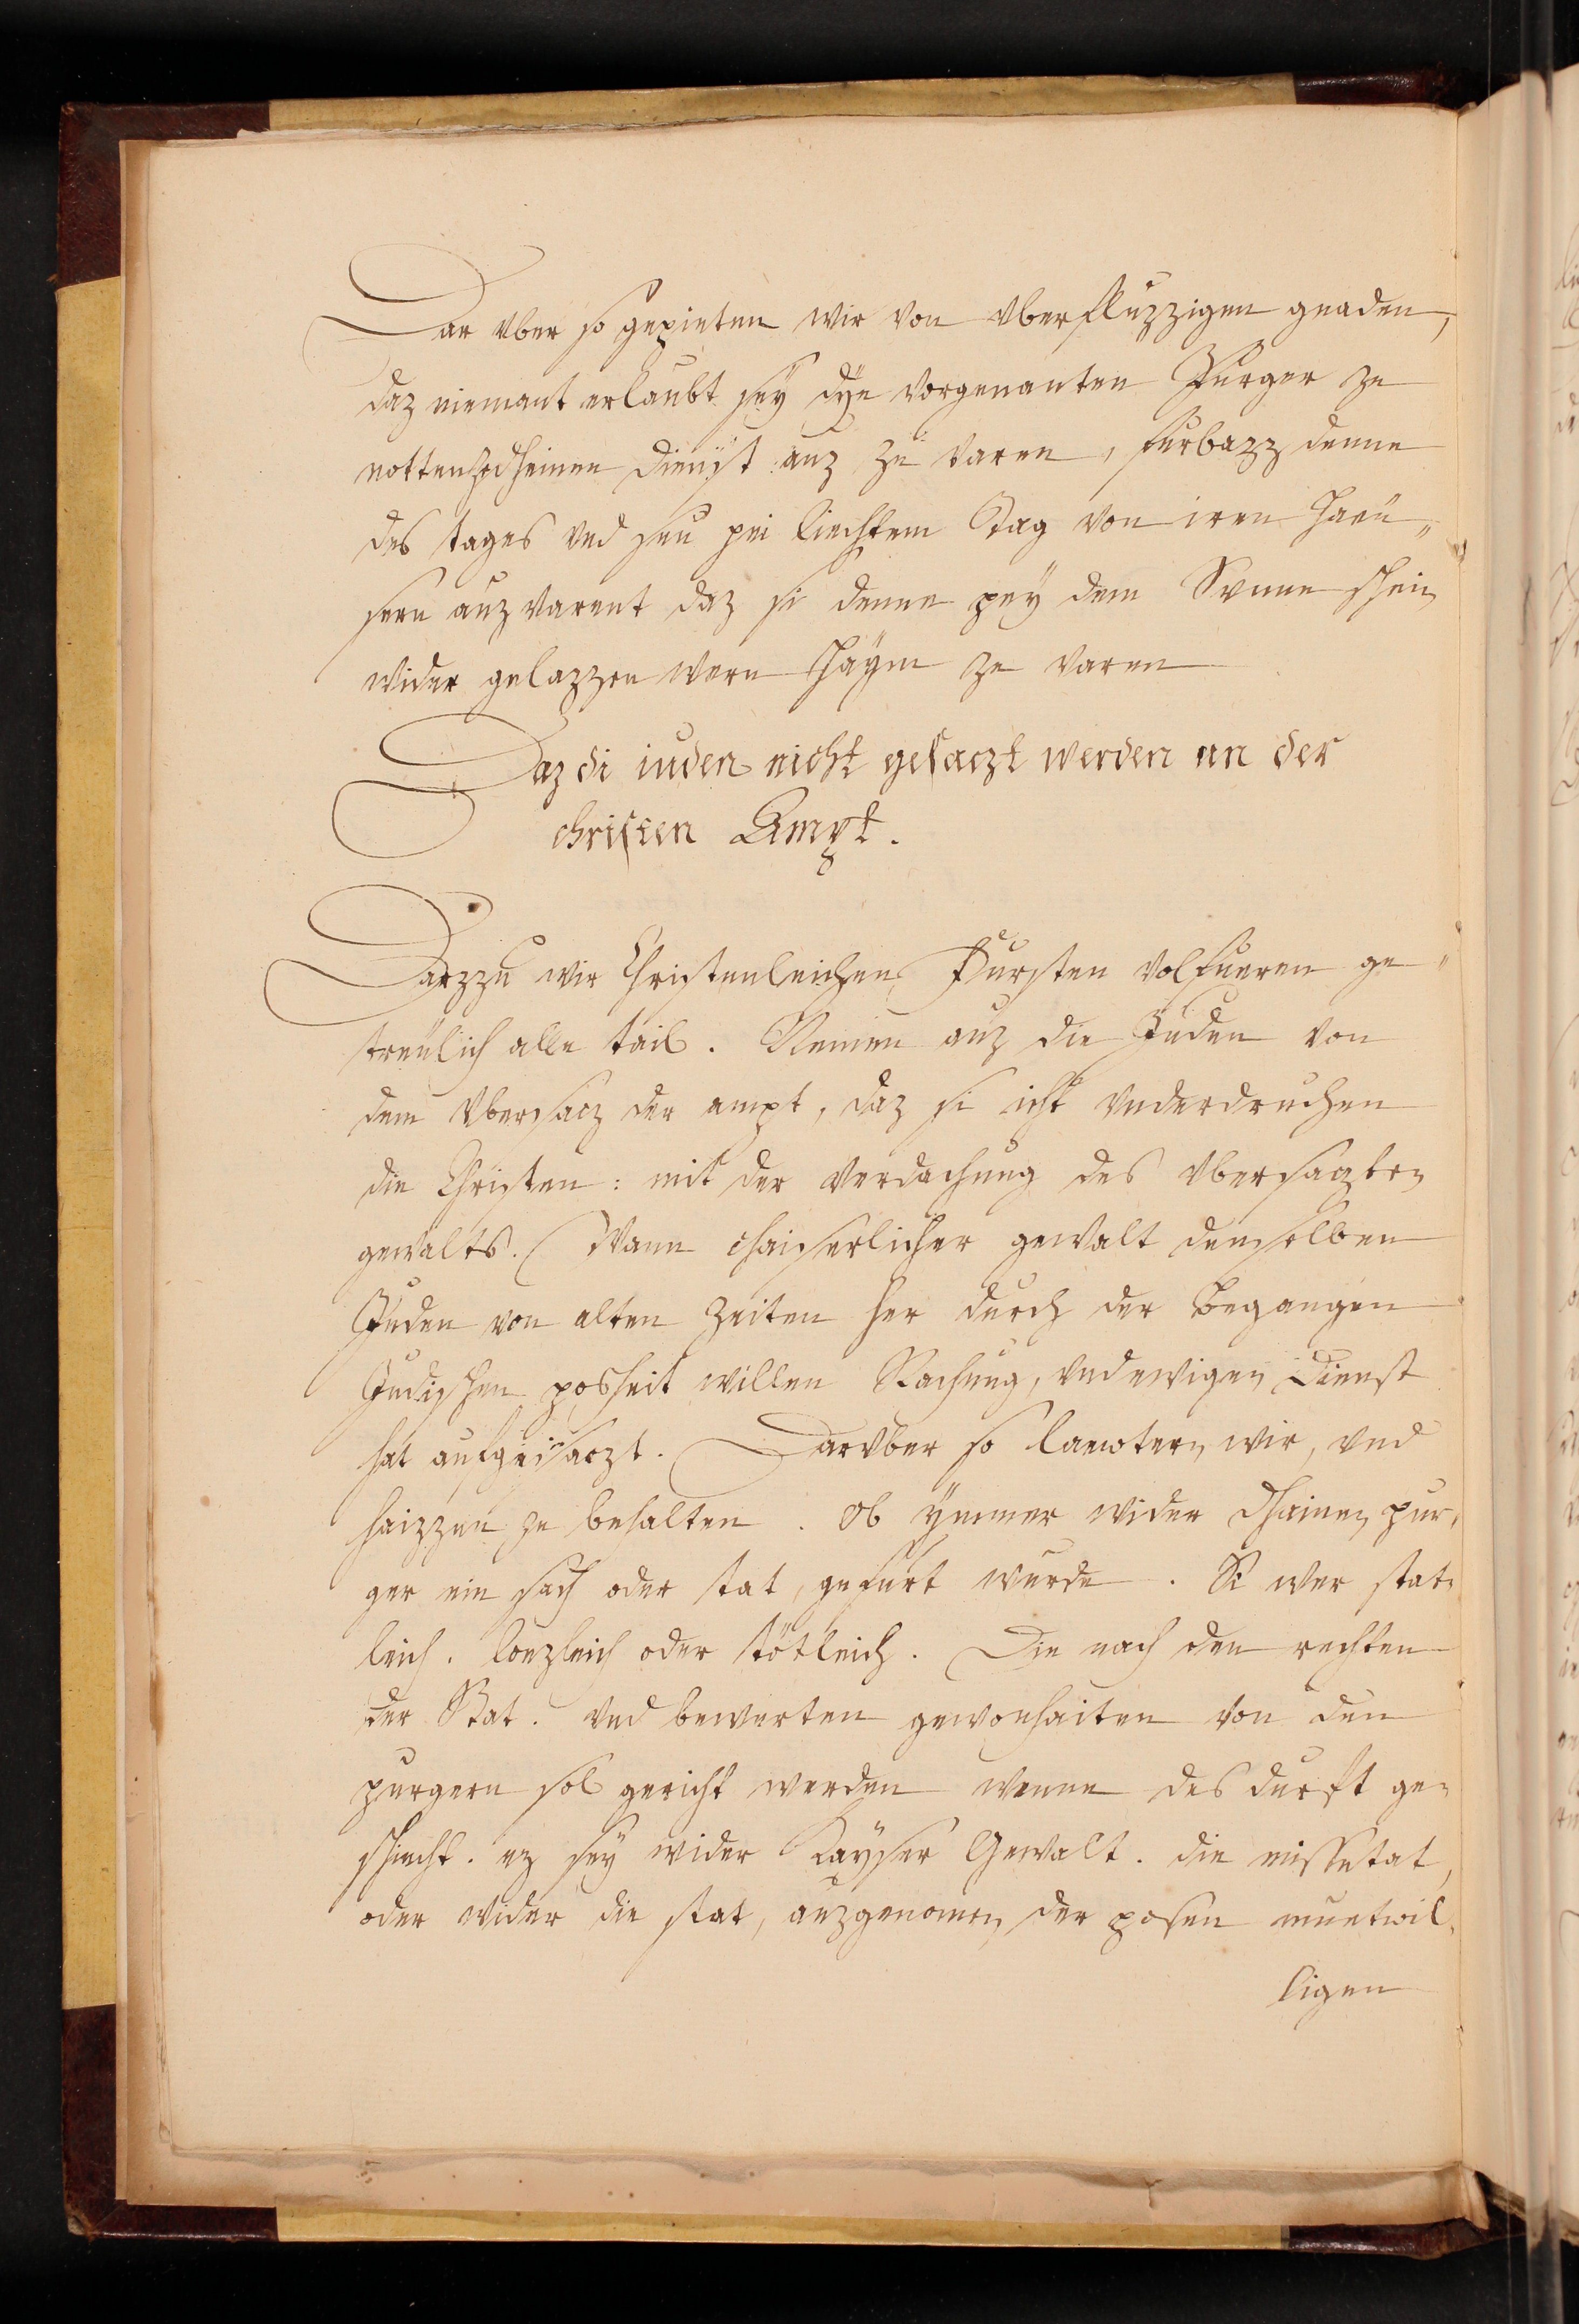 Dar vber so gepieten wir von vberfluzzigen gnaden,
daz niemant erlaubt sey dÿe vorgenanten Purger ze
notten ze dheinen Dienst auz ze varen, furbazz denne
des tages vnd zeu pei liechtem Tag von iren Haeü„
sern auz varent daz si denne peÿ dem Svnne schein
wider gelazzen wern Haÿm ze varen
Daz di iuden nicht gesaczt werden an der
christen Ampt.
Darzzu wir Christenleichen Fursten volfueren ge„
treülich alle tail. Nemen auz die Juden von
dem vbersacz der ampt, daz si icht vnderdruchen
die Christen: mit der verdachung des vbersaczten
gewalts. Wann chaiserlicher gewalt denselben
Juden von alten Zeiten her durch der begangen
Judischen posheit willen Rachung, vnd ewigen Dienst
hat aufgesaczt. Darvber so lawtern wir, vnd
haizzen ze behalten. Ob ÿemer wider dhainen pur,
ger ein sach oder tat, gefurt wurde. Si wer stat„
leich. lonzleich oder tötleich. Die nach den rechten
der Stat. vnd bewerten gewonhaiten von den
purgern sol gericht werden wenne des durft ge„
schiecht. ez seÿ wider Kaÿser Gewalt. die missetat,
oder wider die stat, auzgenomen der posen muetwil„
ligen